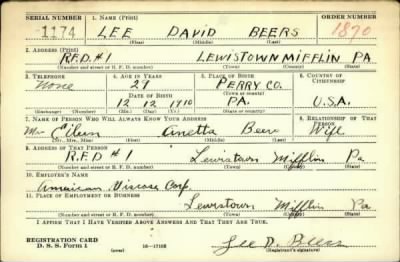 SERIAL NUMBER 1. NAME (Print) ORDER NUMBER
1174 LEE DAVID BEERS 1870
(First) (Middle) (Last)
2. ADDRESS (Print)
R.F.D #1 LEWISTOWN MIFFLIN PA
(Number and street or R. F. D. number) (Town) (County) (State)
3. TELEPHONE 4. AGE IN YEARS 5. PLACE OF BIRTH 6. COUNTRY OF CITIZENSHIP
None 29 PERRY CO.
DATE OF BIRTH (Town or county)
12 12 1910 PA. U.S.A.
(Exchange) (No.) (Mo.) (Day) (Yr.) (State or country)
7. NAME OF PERSON WHO WILL ALWAYS KNOW YOUR ADDRESS 8. RELATIONSHIP OF THAT PERSON
Mrs Eileen Anetta Beers Wife
(Mr., Mrs., Miss) (First) (Middle) (Last)
9. ADDRESS OF THAT PERSON
R.F.D #1 Lewistown Mifflin Pa
(Number and street or R. F. D. number) (Town) (County) (State)
10. EMPLOYER'S NAME
American Viscose Corp.
11. PLACE OF EMPLOYMENT OR BUSINESS
Lewistown Mifflin Pa
(Number and street or R. F. D. number) (Town) (County) (State)
I AFFIRM THAT I HAVE VERIFIED ABOVE ANSWERS AND THAT THEY ARE TRUE.
REGISTRATION CARD
D. S. S. Form 1 (over) 16-17105 Lee D. Beers
(Registrant's signature)